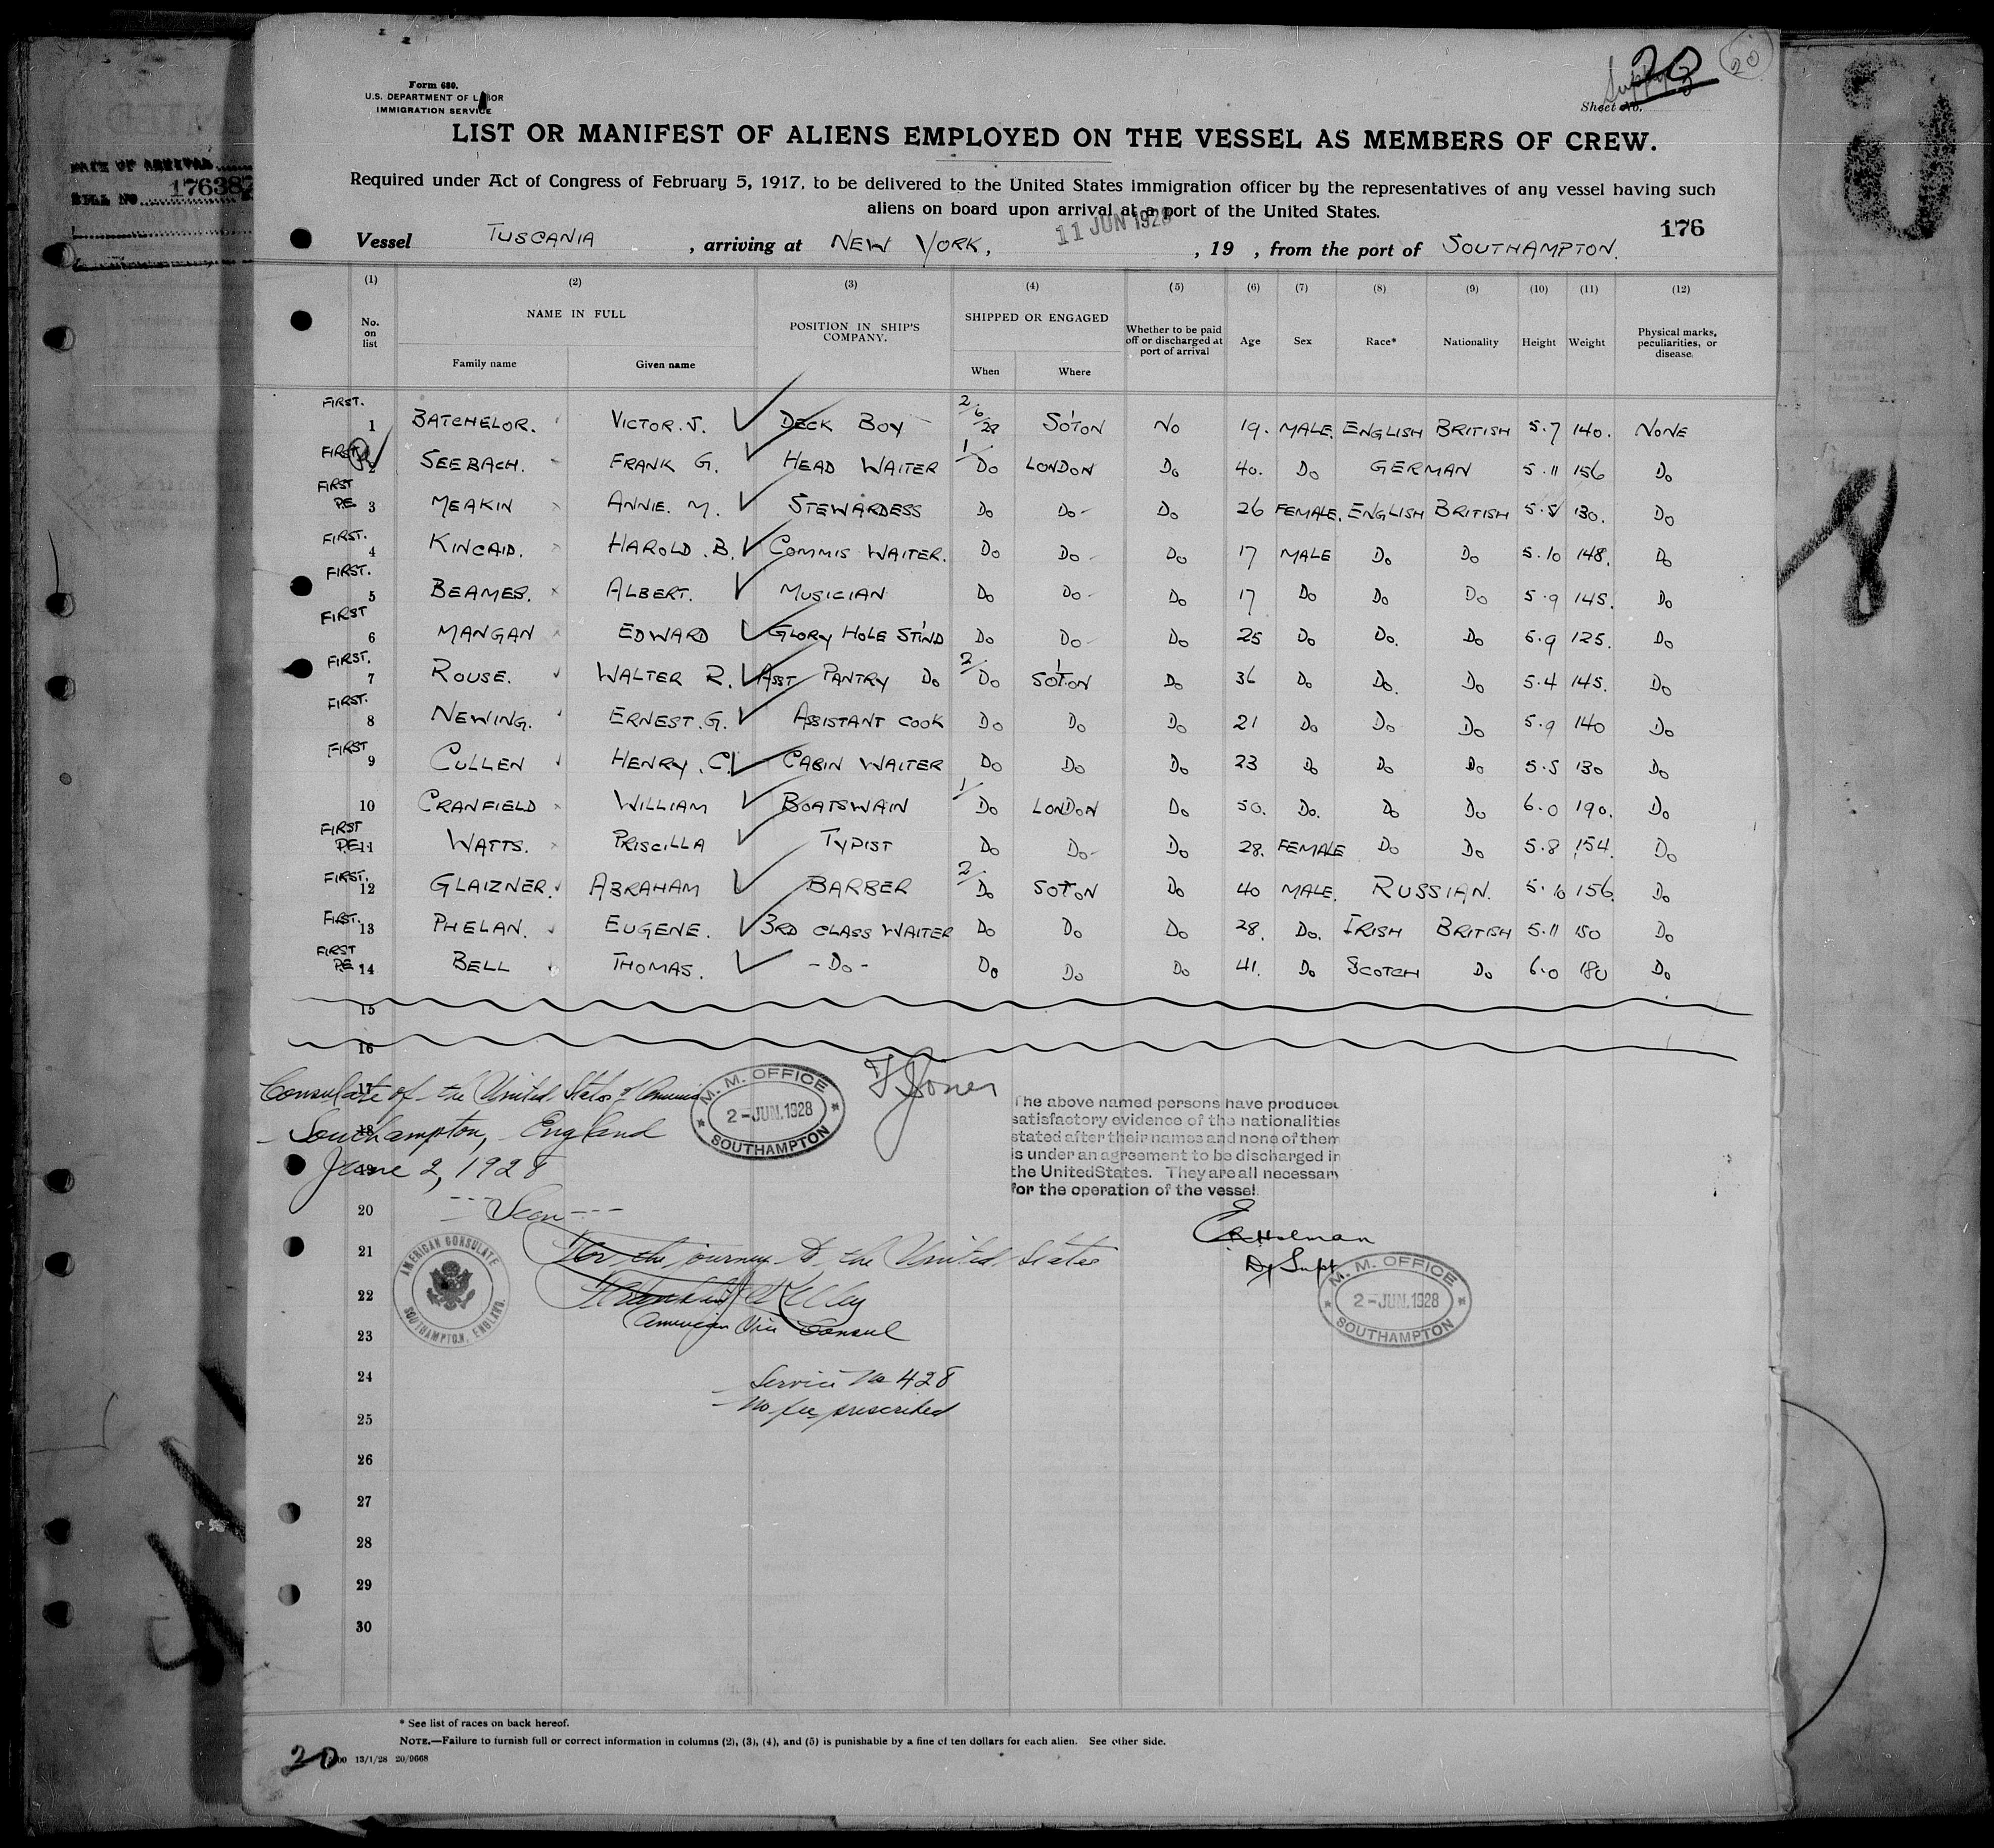 Form 680.
U.S. DEPARTMENT OF LABOR
IMMIGRATION SERVICE
Supp 3
20
20
Sheet No.
LIST OR MANIFEST OF ALIENS EMPLOYED ON THE VESSEL AS MEMBERS OF CREW.
DATE OF ARRIVAL
BILL NO 176387
Required under Act of Congress of February 5, 1917, to be delivered to the United States immigration officer by the representatives of any vessel having such
aliens on board upon arrival at a port of the United States.
11 JUN 1928
176
Vessel TUSCANIA , arriving at NEW YORK, , 19 , from the port of SOUTHAMPTON.
(1) (2) (3) (4) (5) (6) (7) (8) (9) (10) (11) (12)
No. on list NAME IN FULL Family name Given name POSITION IN SHIP'S COMPANY. SHIPPED OR ENGAGED When Where Whether to be paid off or discharged at port of arrival Age Sex Race* Nationality Height Weight Physical marks, peculiarities, or disease.
FIRST. 1 BATCHELOR. VICTOR. J. DECK BOY 2/6/28 SO'TON NO 19. MALE. ENGLISH BRITISH 5.7 140. NONE
FIRST 2 SEEBACH. FRANK G. HEAD WAITER 1/Do LONDON Do 40. Do GERMAN 5.11 156 Do
FIRST P.E 3 MEAKIN ANNIE. M. STEWARDESS Do Do Do 26 FEMALE. ENGLISH BRITISH 5.5 130. Do
FIRST. 4 KINCAID. HAROLD. B. COMMIS WAITER. Do Do Do 17 MALE Do Do 5.10 148. Do
FIRST. 5 BEAMES. ALBERT. MUSICIAN Do Do Do 17 Do Do Do 5.9 145. Do
FIRST 6 MANGAN EDWARD GLORY HOLE ST'WD Do Do Do 25 Do Do. Do 5.9 125. Do
FIRST. 7 ROUSE. WALTER R. ASST PANTRY Do 2/Do SO'TON Do 36 Do Do. Do 5.4 145. Do
FIRST. 8 NEWING. ERNEST. G. ASSISTANT COOK Do Do Do 21 Do Do Do 5.9 140 Do
FIRST 9 CULLEN HENRY. C. CABIN WAITER Do Do Do 23 Do Do Do 5.5 130 Do
10 CRANFIELD WILLIAM BOATSWAIN 1/Do LONDON Do 50. Do. Do Do 6.0 190. Do
FIRST P.E 11 WATTS. PRISCILLA TYPIST Do Do Do 28. FEMALE Do Do 5.8 154. Do
FIRST. 12 GLAIZNER. ABRAHAM BARBER 2/Do SOTON Do 40 MALE. RUSSIAN. 5.10 156. Do
FIRST. 13 PHELAN. EUGENE. 3RD CLASS WAITER Do Do Do 28. Do. IRISH BRITISH 5.11 150 Do
FIRST P.E 14 BELL THOMAS. -Do- Do Do Do 41. Do SCOTCH Do 6.0 180 Do
15
16
17
Consulate of the United States of America
18
Southampton, England
19
June 2, 1928
M. M. OFFICE
2-JUN.1928
SOUTHAMPTON
The above named persons have produced
satisfactory evidence of the nationalities
stated after their names and none of them
is under an agreement to be discharged in
the United States. They are all necessary
for the operation of the vessel.
20
Seen
21
For the journey to the United States
22
American Vice Consul
23
AMERICAN CONSULATE
SOUTHAMPTON, ENGLAND.
Holman
Dy Supt
M. M. OFFICE
2-JUN.1928
SOUTHAMPTON
24
Service No 428
No fee prescribed
25
26
27
28
29
30
* See list of races on back hereof.
NOTE.—Failure to furnish full or correct information in columns (2), (3), (4), and (5) is punishable by a fine of ten dollars for each alien. See other side.
20
13/1/28 20/9668